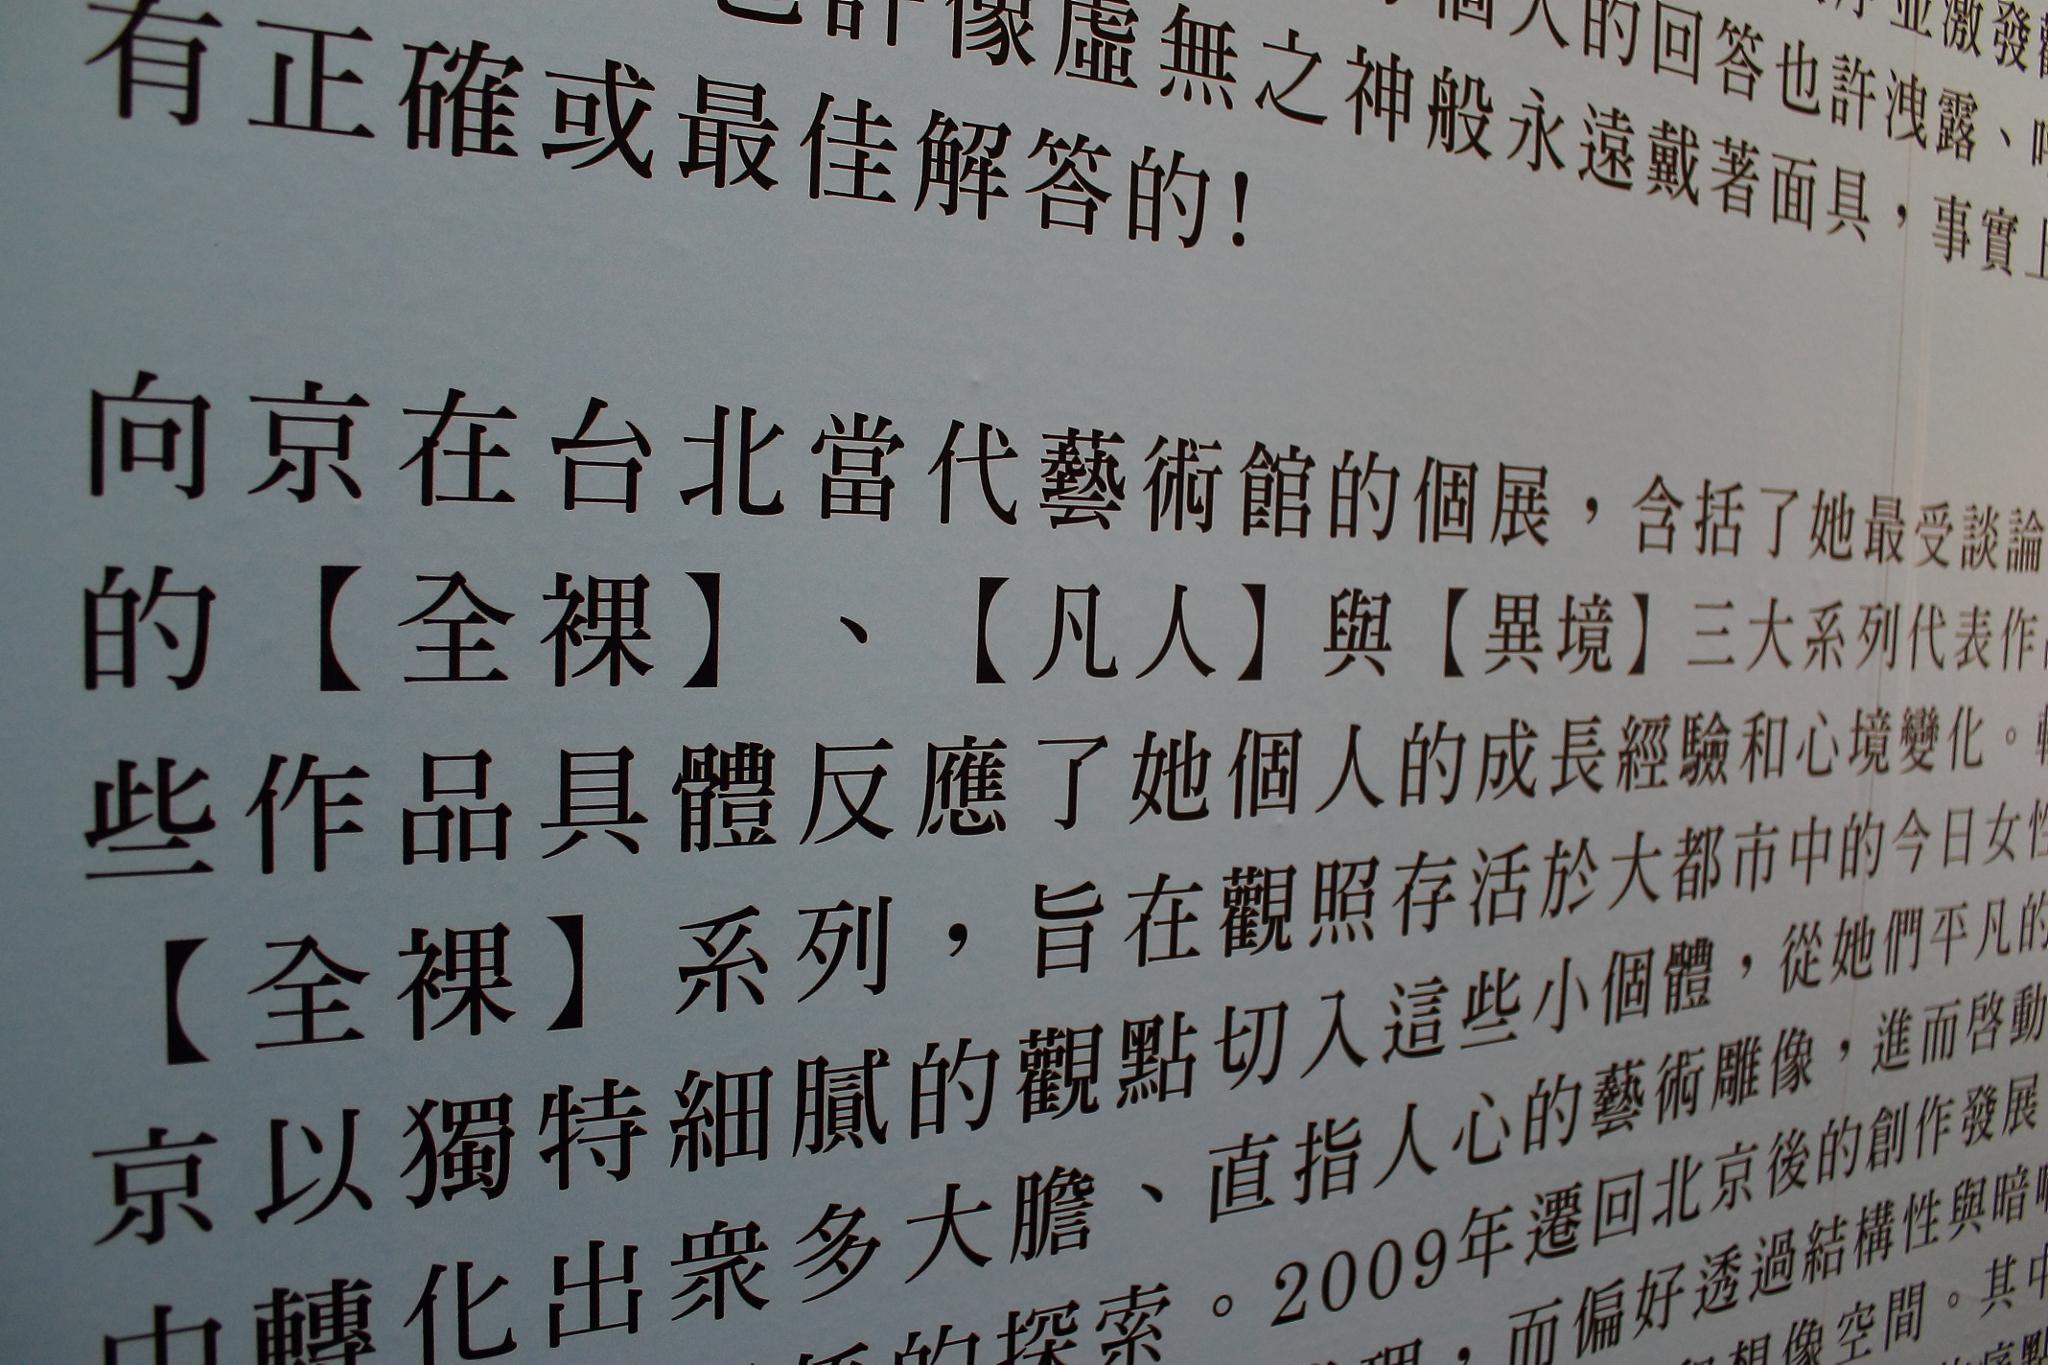 並激發
個人的回答也許洩露、
也許像虛無之神般永遠戴著面具，事實上
有正確或最佳解答的!
向京在台北當代藝術館的個展，含括了她最受談論
的【全裸】、【凡人】與【異境】三大系列代表作
些作品具體反應了她個人的成長經驗和心境變化。
【全裸】系列，旨在觀照存活於大都市中的今日女性
京以獨特細膩的觀點切入這些小個體，從她們平凡的
中轉化出衆多大膽、直指人心的藝術雕像，進而啓動
的探索。2009年遷回北京後的創作發展
，而偏好透過結構性與暗
想像空間。其中